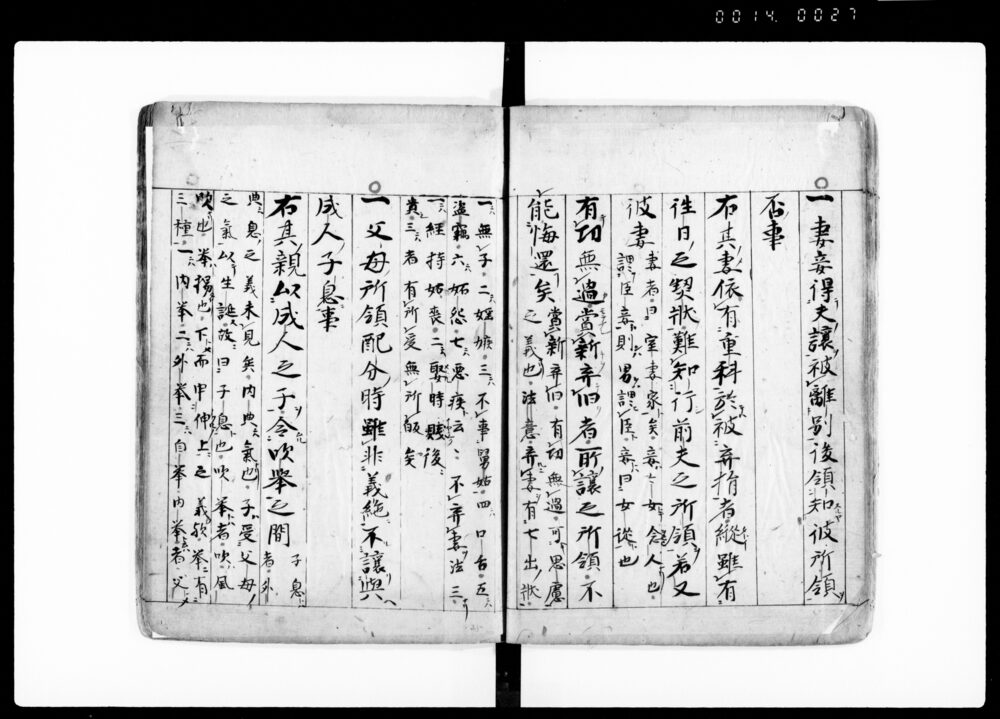 0014.0027
一妻妾得夫讓被離別後領知彼所領
否事
右其妻依有重科於被弃捐者縱雖有
徃日之契狀難知行前夫之所領若又
彼妻 妻者曰室妻家矣妾亡女會人也
謂臣妾則男謂臣妾曰女從也
有功無過賞新弃旧者所讓之所領不
能悔還矣 賞新弃旧有功無過可思慮
之義也法意弃妻有七出狀
一無子二婬嫉三不事舅姑四口舌五
盗竊六妬怨七悪疾云〻不弃妻法三
一経持姑喪二娶時賤後
貴三者有所受無所皈矣
一父母所領配分時雖非義絶不讓與
成人子息事
右其親以成人之子令吹舉之間 子息
者外
典息之義未見矣内典氣也子受父母
之氣以生誕故曰子息也吹挙者吹風
吹也挙揚也下而申伸上之義歟挙有
三種一内挙二外挙三自挙内挙者父